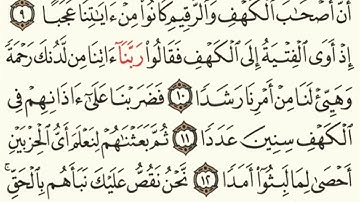 أَنَّ أَصْحَٰبَ ٱلْكَهْفِ وَٱلرَّقِيمِ كَانُوا۟ مِنْ ءَايَٰتِنَا عَجَبًا ٩
إِذْ أَوَى ٱلْفِتْيَةُ إِلَى ٱلْكَهْفِ فَقَالُوا۟ رَبَّنَآ ءَاتِنَا مِن لَّدُنكَ رَحْمَةً
وَهَيِّئْ لَنَا مِنْ أَمْرِنَا رَشَدًا ١٠ فَضَرَبْنَا عَلَىٰٓ ءَاذَانِهِمْ فِى
ٱلْكَهْفِ سِنِينَ عَدَدًا ١١ ثُمَّ بَعَثْنَٰهُمْ لِنَعْلَمَ أَىُّ ٱلْحِزْبَيْنِ
أَحْصَىٰ لِمَا لَبِثُوٓا۟ أَمَدًا ١٢ نَّحْنُ نَقُصُّ عَلَيْكَ نَبَأَهُم بِٱلْحَقِّ ۚ